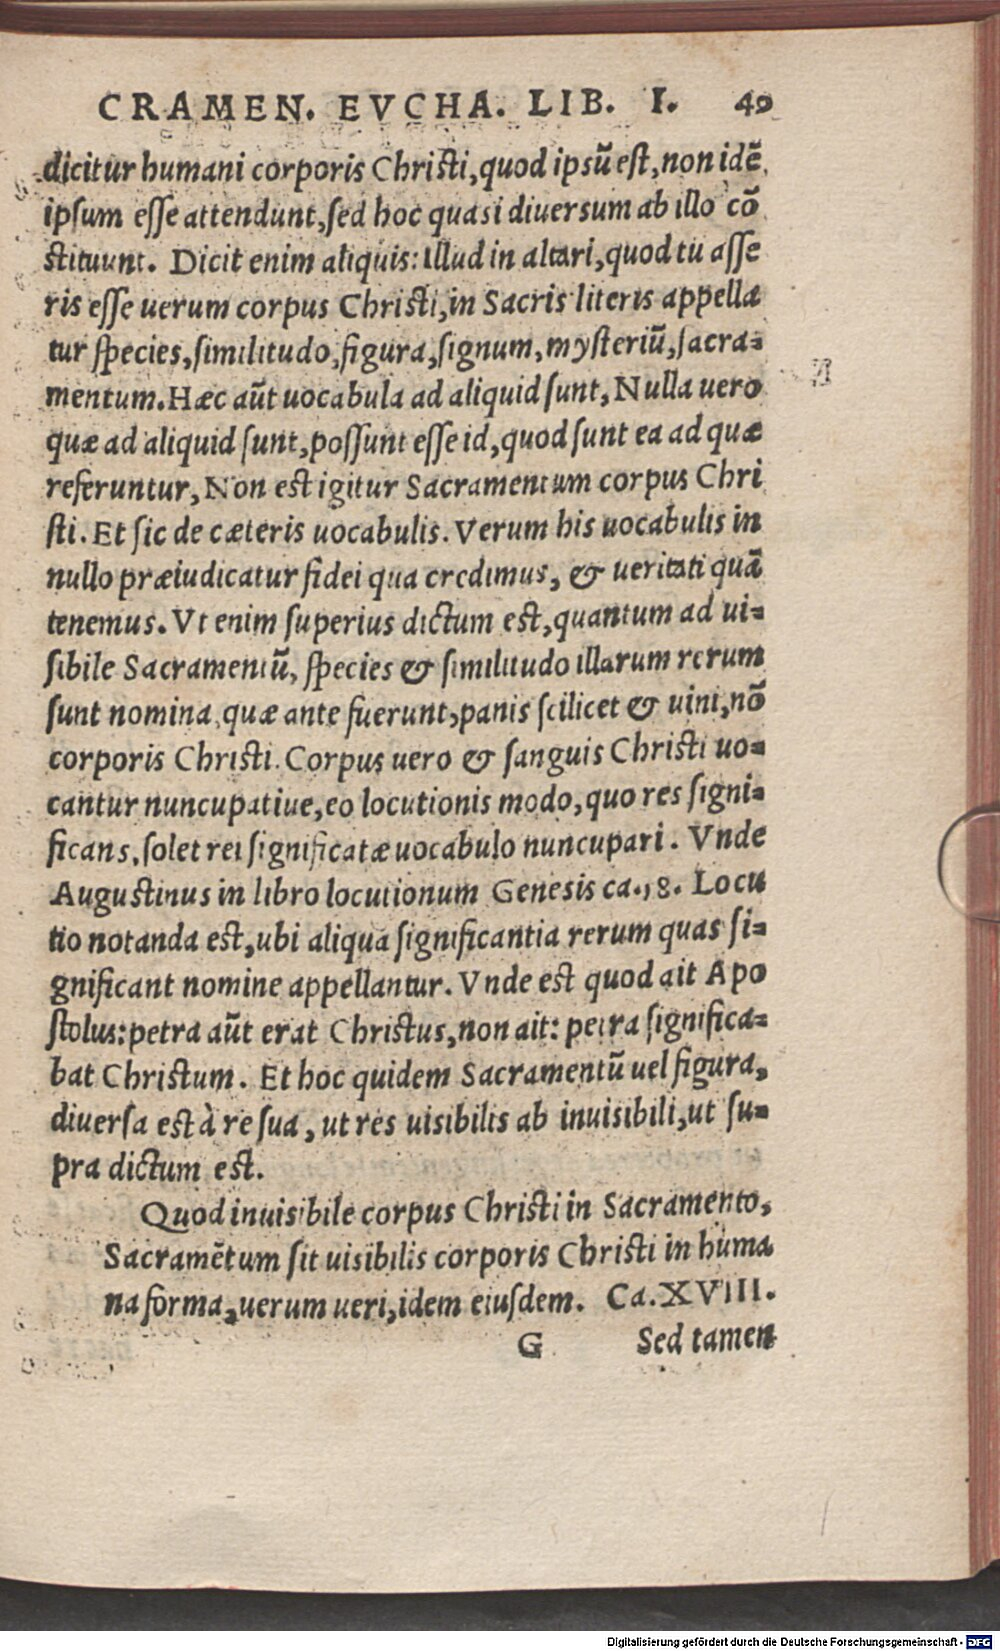 CRAMEN. EVCHA. LIB. I. 49
dicitur humani corporis Christi, quod ipsũ est, non idẽ
ipsum esse attendunt, sed hoc quasi diuersum ab illo cõ
stituunt. Dicit enim aliquis: Illud in altari, quod tu asse
ris esse uerum corpus Christi, in Sacris literis appella
tur species, similitudo, figura, signum, mysteriũ, sacra=
mentum. Hæc aũt uocabula ad aliquid sunt, Nulla uero
quæ ad aliquid sunt, possunt esse id, quod sunt ea ad quæ
referuntur, Non est igitur Sacramentum corpus Chri
sti. Et sic de cæteris uocabulis. Verum his uocabulis in
nullo præiudicatur fidei qua credimus, & ueritati quã
tenemus. Vt enim superius dictum est, quantum ad ui=
sibile Sacramentũ, species & similitudo illarum rerum
sunt nomina quæ ante fuerunt, panis scilicet & uini, nõ
corporis Christi. Corpus uero & sanguis Christi uo=
cantur nuncupatiue, eo locutionis modo, quo res signi=
ficans, solet rei significatæ uocabulo nuncupari. Vnde
Augustinus in libro locutionum Genesis ca. 18. Locu
tio notanda est, ubi aliqua significantia rerum quas si=
gnificant nomine appellantur. Vnde est quod ait Apo
stolus: petra aũt erat Christus, non ait: petra significa=
bat Christum. Et hoc quidem Sacramentũ uel figura,
diuersa est à re sua, ut res uisibilis ab inuisibili, ut su=
pra dictum est.
Quod inuisibile corpus Christi in Sacramento,
Sacramẽtum sit uisibilis corporis Christi in huma
na forma, uerum ueri, idem eiusdem. Ca. XVIII.
G Sed tamen
Digitalisierung gefördert durch die Deutsche Forschungsgemeinschaft - DFG